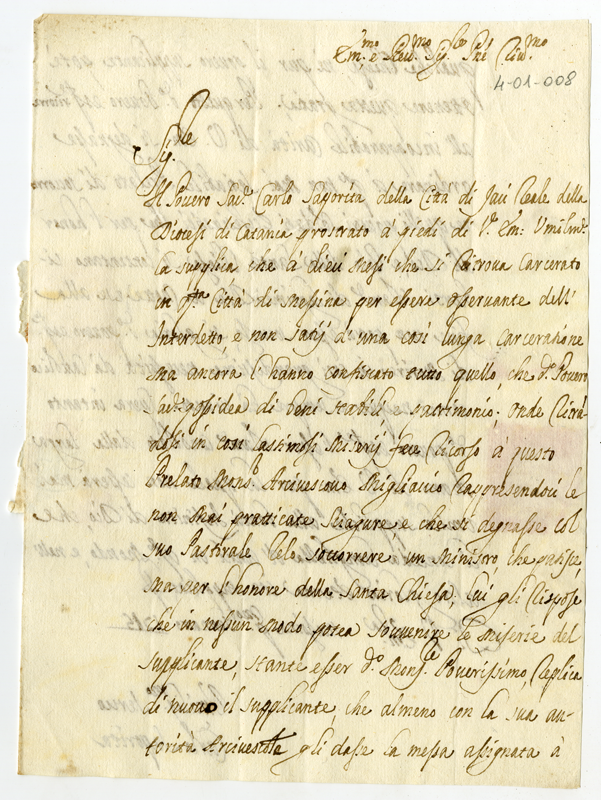 Em.mo e Rev.mo Sig.re Pñe Riv.mo
4-01-008
Sig.re
Il Povero Sac.e Carlo Saporita della Città di Jaci Reale della
Diocesi di Catania prostrato á piedi di V.a Em: Umilm.e
la supplica che á dieci mesi che si ritrova carcerato
in q.ta Città di Messina per essere osservante dell'
Interdetto e non satij d'una così lunga carceratione
ma ancora l'hanno confiscato tutto quello, che d.o Povero
Sac.e possidea di beni stabili e patrimonio. onde
dosi in così lastimosi miserij fece ricorso á questo
Prelato Mons.r Arcivescovo Migliaccio rappresendoci le
non mai pratticate sciagure e che si degnasse col
suo Pastorale zelo soccorrere un Ministro, che patisce,
ma per l'honore della Santa Chiesa, lui gli rispose
che in nessun modo potea sovvenire le miserie del
supplicante, stante esser d.o Mons.r Poverissimo, replica
di nuovo il supplicante, che almeno con la sua au-
torità Arcivescole gli dasse la messa assignata á